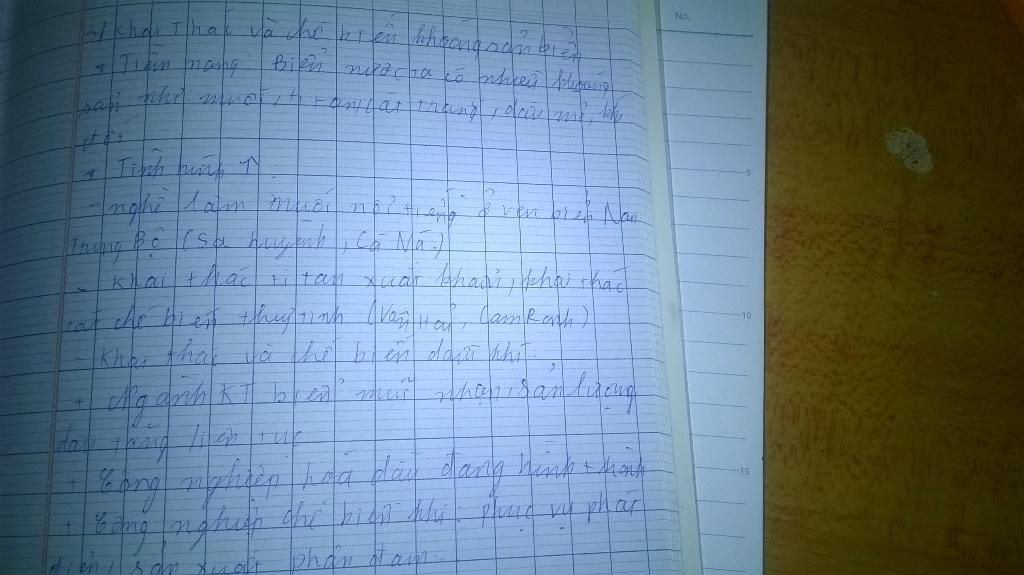 3/ Khai thác và chế biến khoáng sản biển
* Tiềm năng: Biển nước ta có nhiều khoáng
sản như: muối, ti tan, cát trắng, dầu mỏ, khí
đốt
* Tình hình ↑
- nghề làm muối nổi tiếng ở ven biển Nam
Trung Bộ (Sa huỳnh, Cà Ná)
- Khai thác ti tan xuất khẩu, khai thác
cát chế biến thuỷ tinh (Vân Hải, Cam Ranh)
- Khai thác và chế biến dầu khí
+ Ngành KT biển mũi nhọn, sản lượng
dầu tăng liên tục
+ Công nghiệp hoá dầu đang hình thành
+ Công nghiệp chế biến khí: phục vụ phát
điện, sản xuất phân đạm..
No.
5
10
15